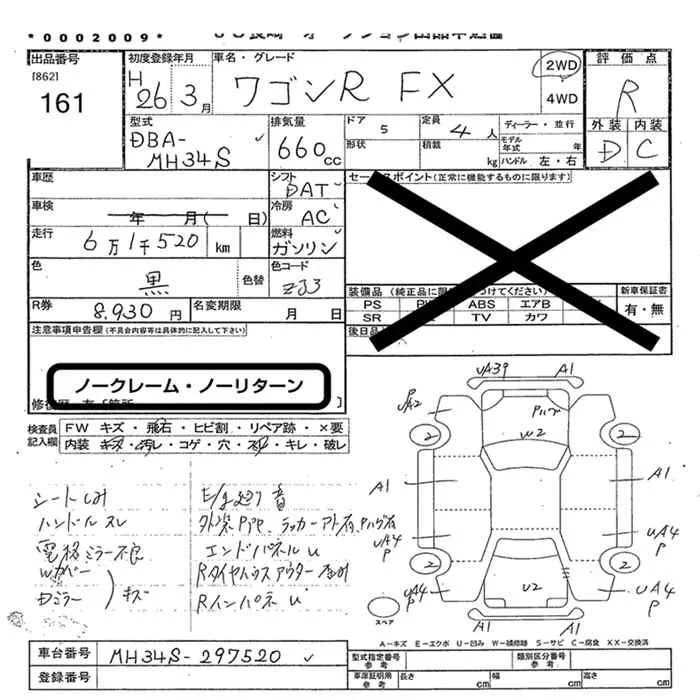 *0002009*
出品番号
[862]
161
初度登録年月
H 26年 3月
車名・グレード
ワゴンR FX
2WD
4WD
評価点
R
外装 内装
D C
型式
DBA-
MH34S
排気量
660 cc
ドア 5
定員 4人
ディーラー・並行
形状
積載 kg
モデル年式 年
ハンドル 左・右
車歴
シフト
DAT
車検
年 月( 日)
冷房
AC
走行
6万1千520 km
燃料
ガソリン
色
黒
色替
色コード
ZJ3
R券
8,930円
名変期限
月 日
セールスポイント(正常に機能するものに限ります)
装備品
PS
ABS
エアB
SR
TV
カワ
新車保証書
有・無
後日品
注意事項申告欄(不具合内容等は具体的に記入して下さい)
ノークレーム・ノーリターン
検査員
記入欄
FW キズ・飛石・ヒビ割・リペア跡・×要
内装 キズ・汚レ・コゲ・穴・スレ・キレ・破レ
シートしみ
ハンドルスレ
電格ミラー不良
Wカバー
Dミラー
キズ
エンドパネルU
RインパネU
UA39 A1
UA2
P
Pハゲ
W2
2 2
A1 A1
UA4
P
UA4
P
2 2
UA4
P
U2
UA4
P
A1 A1
スペア
A-キズ E-エクボ U-凹み W-補修跡 S-サビ C-腐食 XX-交換済
車台番号
MH34S-297520
登録番号
型式指定番号
参考
類別区分番号
参考
車庫証明用
参考
長さ cm
幅 cm
高さ cm